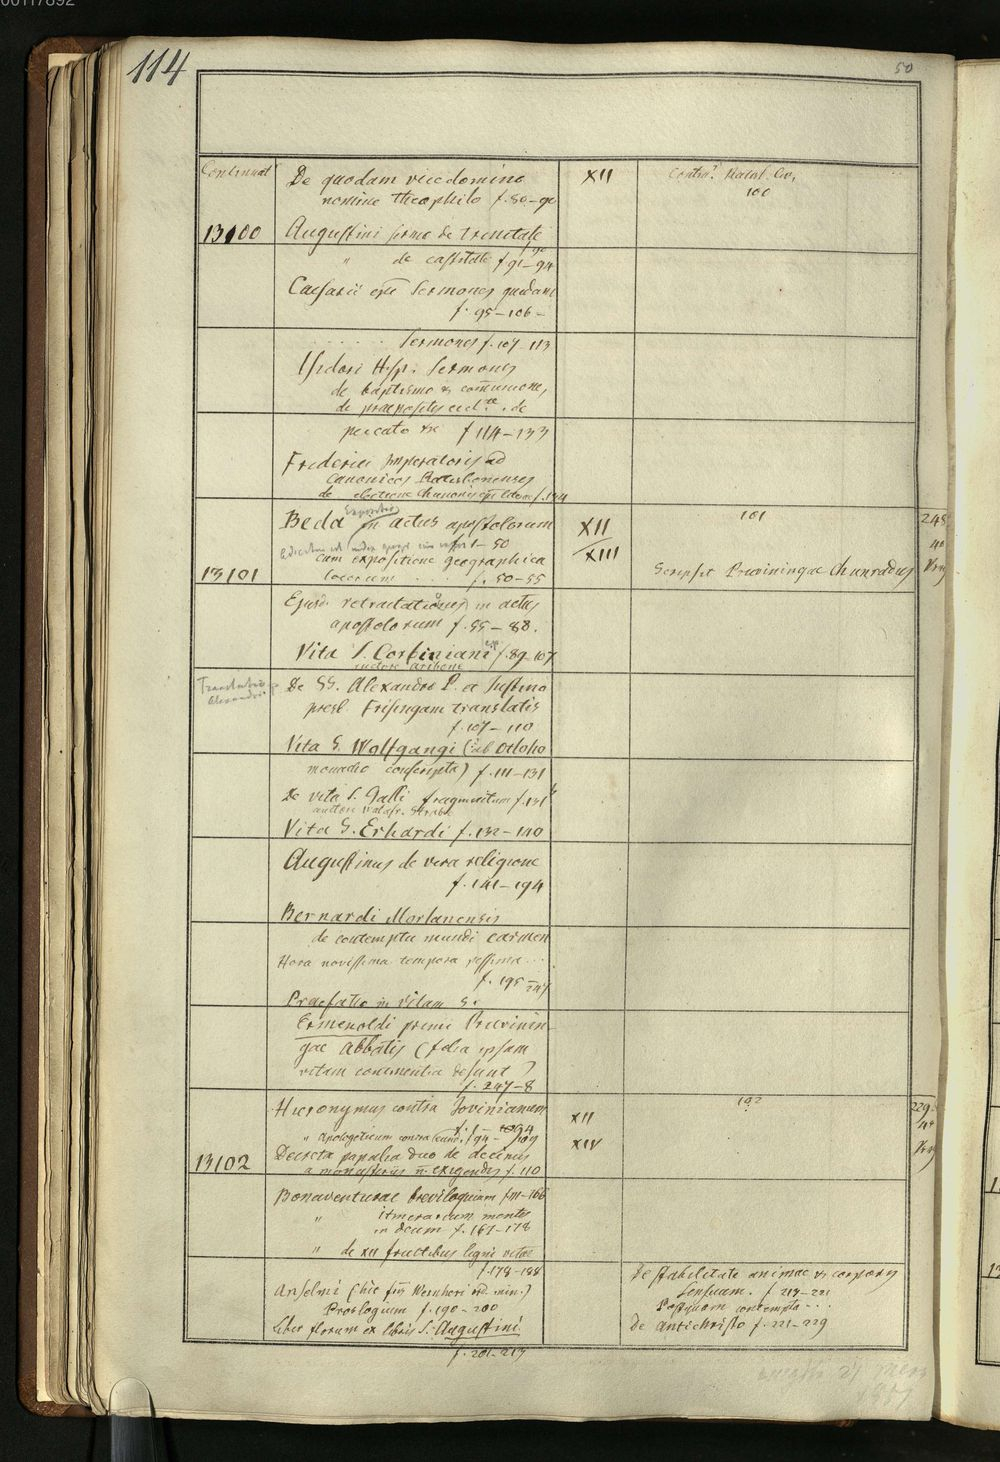 00117892
114
50
Continuat
De quodam vicedomino
nomine Theophilo f. 80-90
XII
100
13100
Augustini sermo de trinitate
" de castitate f 91-94
Caesarii Sermones quidam
f. 95-106-
. . . . . Sermones f. 107-113
Isidori Hisp. Sermones
de baptismo & comunione,
de praepositis de
peccato f 114-133
Friderici Imperatoris ad
canonicos Ratisbonenses
de electione Chunonis f. 134
13101
Beda Expositio in actus apostolorum
f. 1-50
cum expositione geographica
locorum . . . f. 50-55
XII
XIII
101
Scripsit Pruviningae Chunradus
248
40
Ejusd. retractationes in actus
apostolorum f. 55-88.
Vita S. Corbiniani f. 89-107
auctore Aribone
Translatio
Alexandri
De SS. Alexandro P. et Justino
presb. Frisingam translatis
f. 107-110
Vita S. Wolfgangi (ab Otloho
monacho conscripta) f. 111-131
De vita S. Galli fragmentum f. 131
auctore Walafr. Strabo
Vita S. Erhardi f. 132-140
Augustinus de vera religione
f. 141-194
Bernardi Morlanensis
de contemptu mundi carmen
Hora novissima tempora pessima . . .
f. 195-247
Praefatio in vitam S.
Ermenoldi primi Pruvinin-
gae abbatis (folia ipsam
vitam continentia desunt)
f. 247-8
13102
Hieronymus contra Jovinianum
f. 1-94
" Apologeticum contra eund. f. 94-109
Decreta papalia duo de decimis
a monasteriis exigendis f. 110
XII
XIV
102
229
40
Bonaventurae breviloquium f. 111-166
" itinerarium mentis
in deum f. 167-178
" de XII fructibus ligni vitae
f. 178-188
Anselmi (hic Wernheri ord. min.)
Proslogium f. 190-200
Liber florum ex libris S. Augustini
f. 201-217
De stabilitate animae & corporis
f. 217-221
Postquam contempla . . .
De antichristo f. 221-229